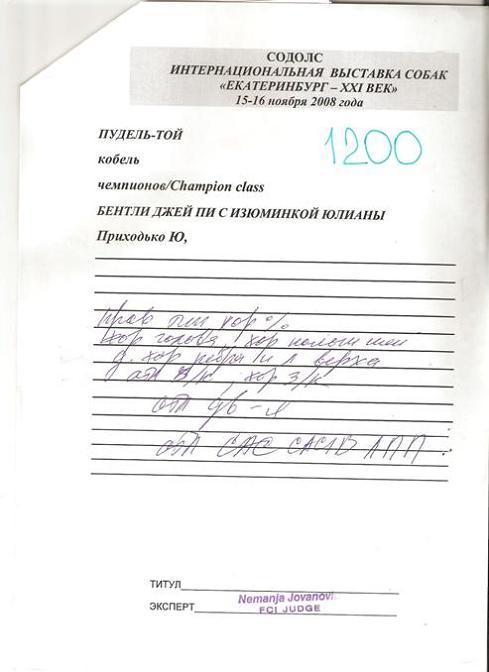 СОДОЛС
ИНТЕРНАЦИОНАЛЬНАЯ ВЫСТАВКА СОБАК
«ЕКАТЕРИНБУРГ – XXI ВЕК»
15-16 ноября 2008 года
1200
ПУДЕЛЬ-ТОЙ
кобель
чемпионов/Champion class
БЕНТЛИ ДЖЕЙ ПИ С ИЗЮМИНКОЙ ЮЛИАНЫ
Приходько Ю,
прав тип хор %
хор голова, хор
хор ребра и л верха
от п/к, хор з/к
от
отл САС CACIB ЛПП
ТИТУЛ
ЭКСПЕРТ Nemanja Jovanovi
FCI JUDGE